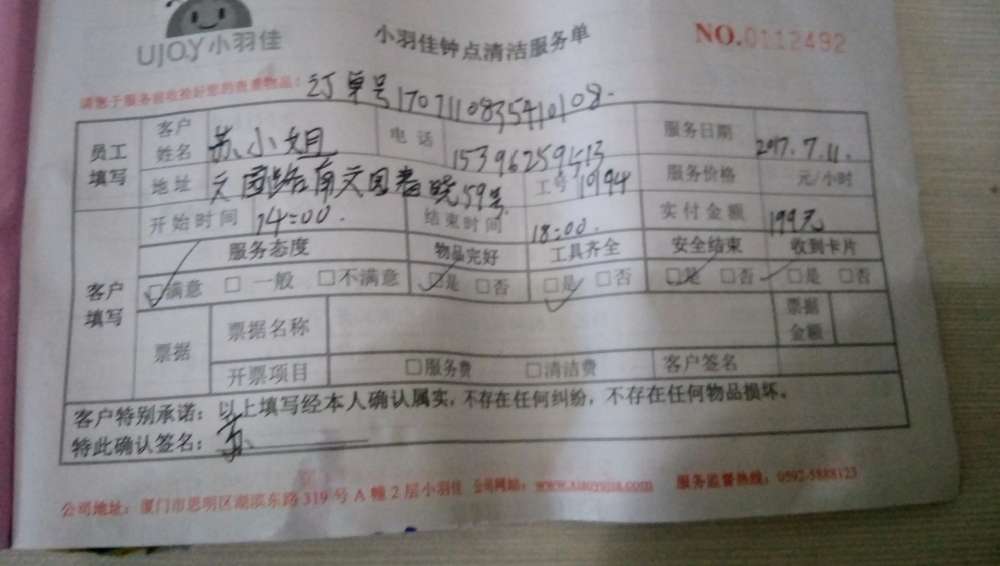 UJOY小羽佳
小羽佳钟点清洁服务单
NO.0112492
请您于服务前收捡好您的贵重物品:
订单号1707110835410108.
员工填写 客户姓名 苏小姐 电话 15396259513 服务日期 2017.7.11.
地址 文园路南文园春晓59号 工号 1094 服务价格 元/小时
客户填写 开始时间 14:00. 结束时间 18:00. 实付金额 199元
服务态度 物品完好 工具齐全 安全结束 收到卡片
□满意 □一般 □不满意 □是 □否 □是 □否 □是 □否 □是 □否
票据 票据名称 票据金额
开票项目 □服务费 □清洁费 客户签名
客户特别承诺:以上填写经本人确认属实,不存在任何纠纷,不存在任何物品损坏。
特此确认签名:苏
公司地址:厦门市思明区湖滨东路319号A幢2层小羽佳 公司网站:www.xiaoyujia.com 服务监督热线:0592-5888123